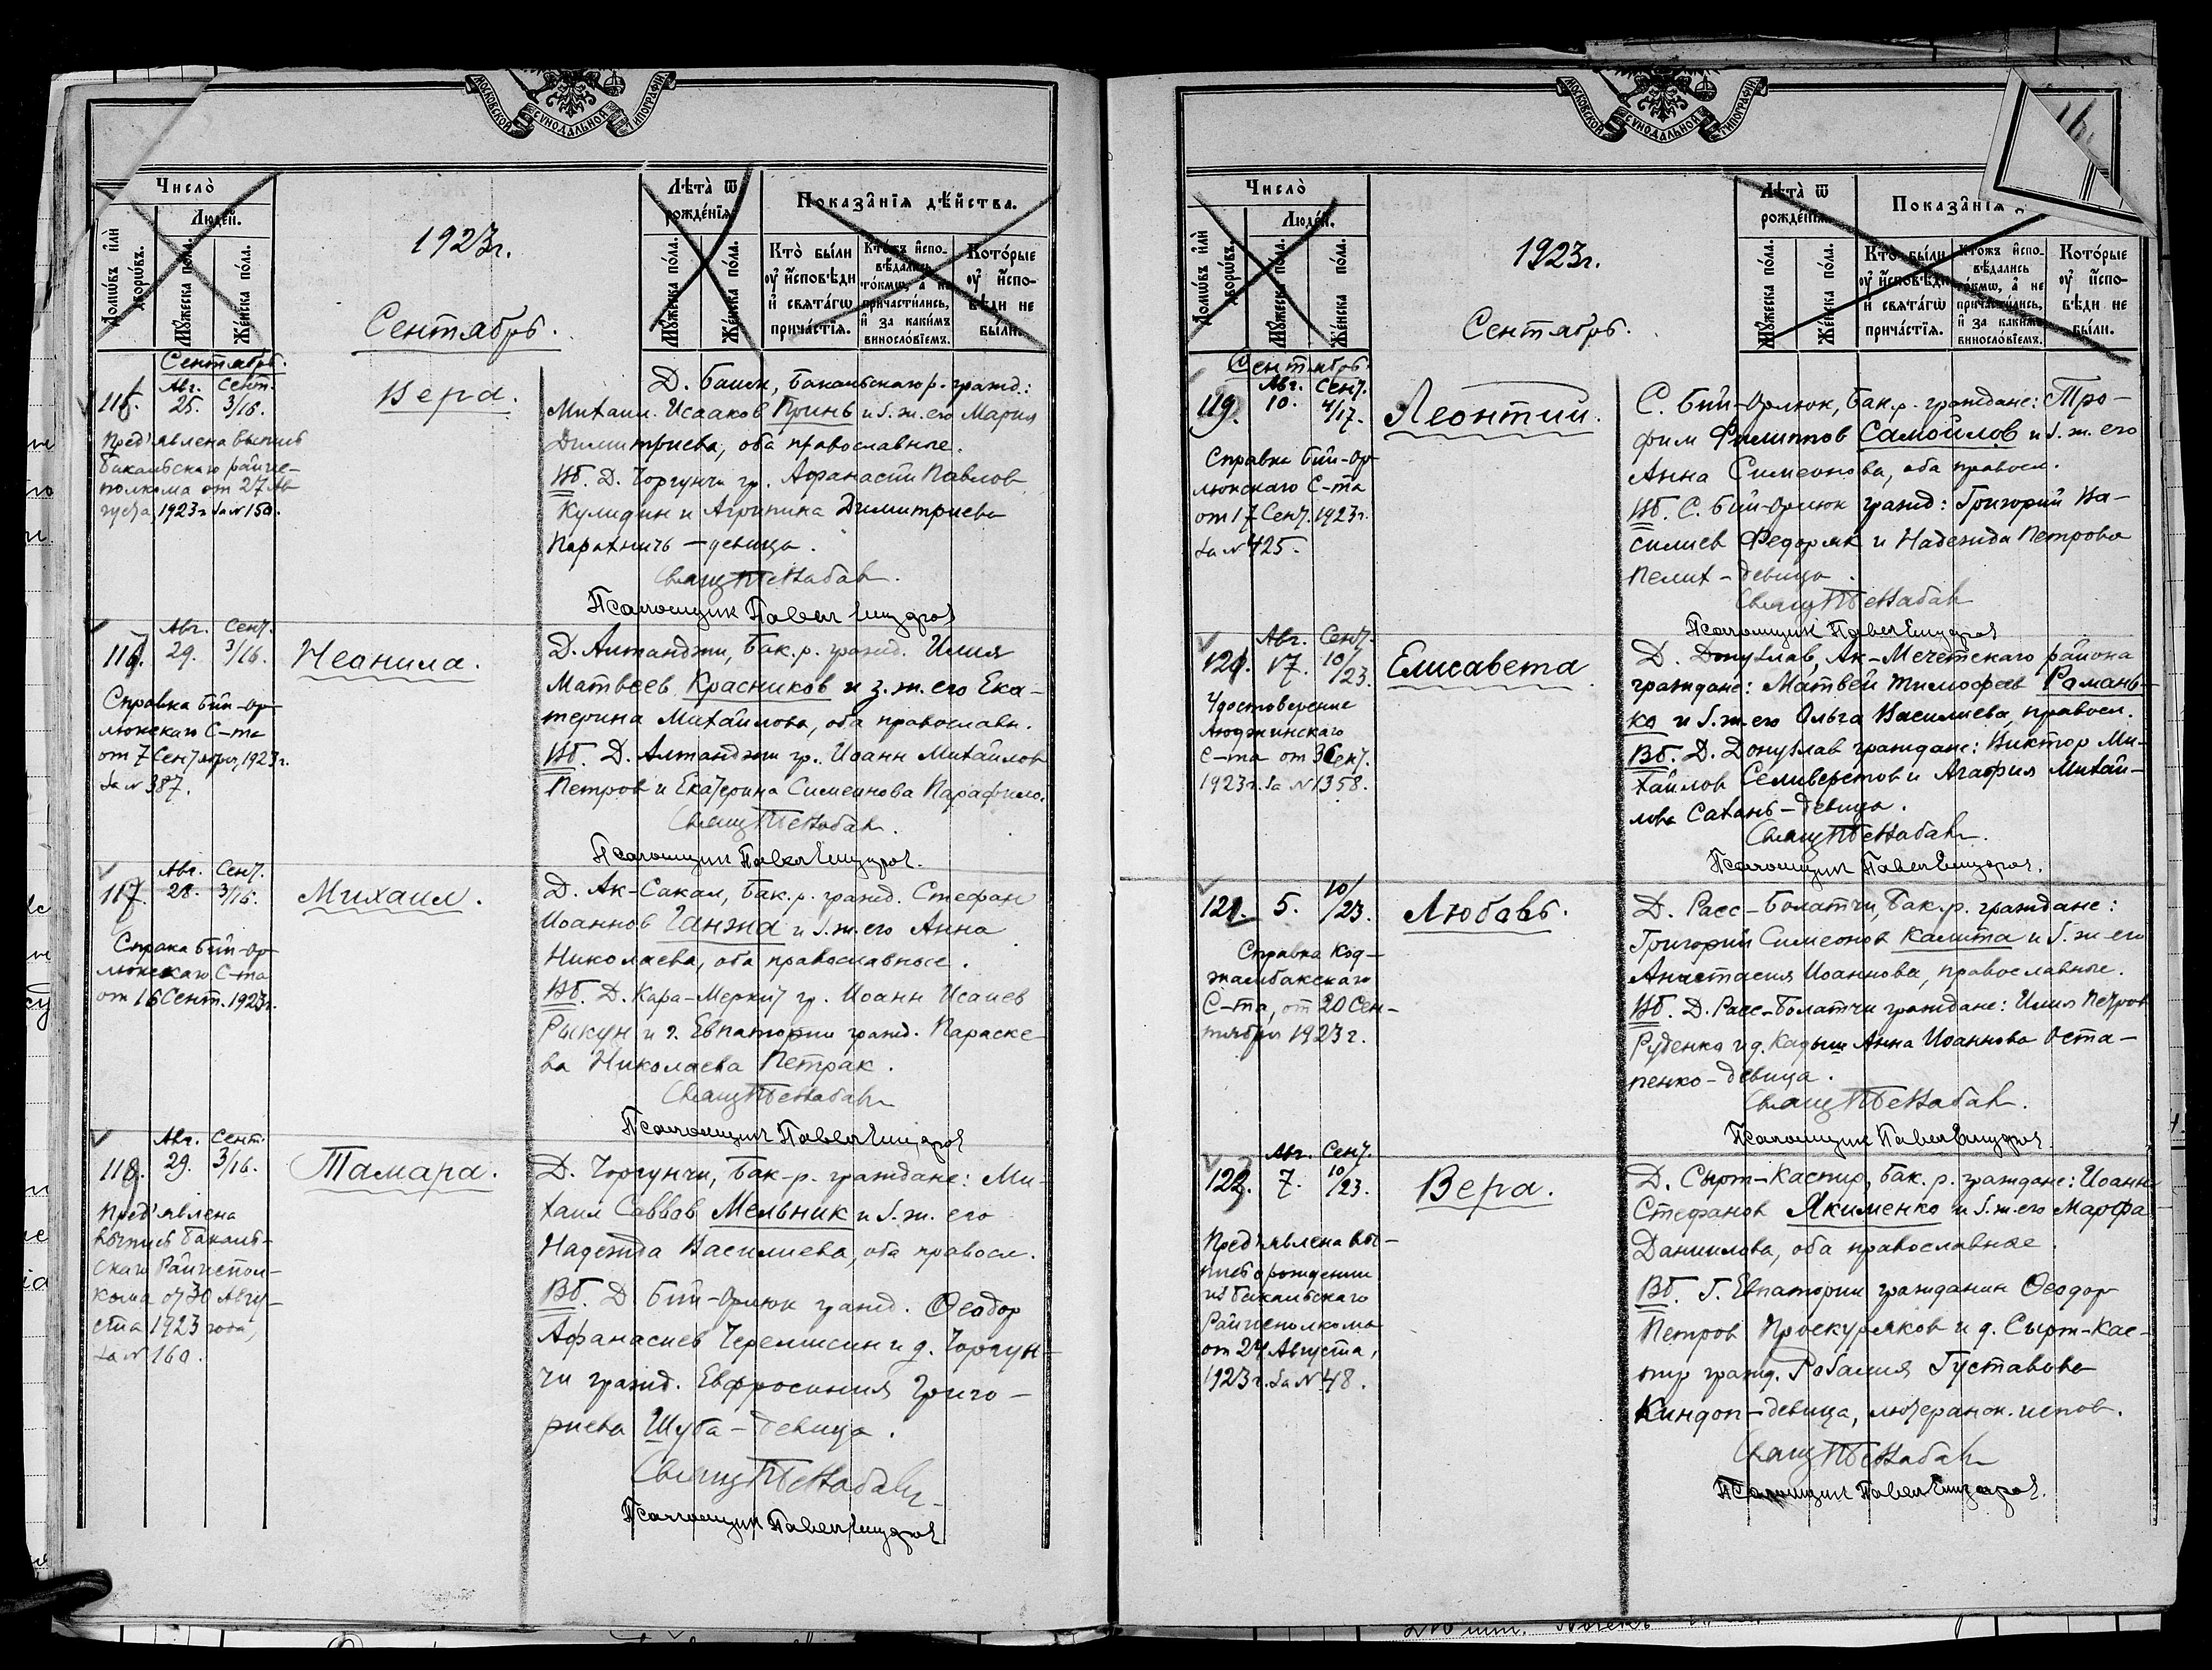 МОСКОВСКОЙ СѴНОДАЛЬНОЙ ТИПОГРАФІИ
Число̀
Людей.
Домѡвъ и҆лѝ дворѡвъ.
Мꙋ́жеска по́ла.
Же́нска по́ла.
1923г.
Сентябрь.
Лѣта̀ ѿ рожде́нїѧ
Мꙋ́жеска по́ла.
Же́нска по́ла.
Показа̑нїѧ дѣ́йства.
Кто̀ бы́ли ᲂу҆ и҆́сповѣди и҆ свѧта́гѡ прича́стїѧ.
Кто́жъ и҆спо-вѣ́дались то́кмѡ, а҆ не причасти́лись, и҆ за каки́мъ винослόвїемъ.
Кото́рые ᲂу҆ и҆спо-вѣди не бы́ли.
Сентябрь.
Авг. Сент.
116. 25. 3/16.
Вера.
Пред'явлена выпись
Бакальскаго райис-
полкома от 27 Ав-
густа, 1923г За № 150.
Д. Башк, Бакальскаго р. гражд.:
Михаил Исааков Принь и з. ж. его Мария
Димитриева, оба православные.
Вб. Д. Чоргунчи гр. Афанасий Павлов
Кулидин и Агрипина Димитриева
Парахничь – девица.
Свящ
Псаломщик Павел
Авг. Сент.
116. 29. 3/16.
Неонила.
Справка Бий-Ор-
люкскаго С-та
от 7 Сентября, 1923г.
За № 387.
Д. Алтанджи, Бак. р. гражд. Илия
Матвеев Красников и з. ж. его Ека-
терина Михайлова, оба православн.
Вб. Д. Алтанджи гр. Иоанн Михайлов
Петров и Екатерина Симеонова Парафило.
Свящ
Псаломщик Павел
Авг. Сент.
117. 28. 3/16.
Михаил.
Справка Бий-Ор-
люкскаго С-та
от 16 Сент. 1923г.
Д. Ак-Сакал, Бак. р. гражд. Стефан
Иоаннов Ганжа и з. ж. его Анна
Николаева, оба православные.
Вб. Д. Кара-Меркит гр. Иоанн Исаиев
Рыкун и г. Евпатории гражд. Параске-
ва Николаева Петрак.
Свящ
Псаломщик Павел
Авг. Сент.
118. 29. 3/16.
Тамара.
Пред'явлена
выпись Бакаль-
скаго Райиспол-
кома от 30 Авгу-
ста 1923 года,
За № 160.
Д. Чоргунчи, Бак-р. граждане: Ми-
хаил Саввов Мельник и з. ж. его
Надежда Василиева, оба правосл.
Вб. Д. Бий-Орлюк гражд. Феодор
Афанасиев Черемисин и д. Чоргун-
чи гражд. Евфросиния Григо-
риева Шуба – девица.
Свящ
Псаломщик Павел
МОСКОВСКОЙ СѴНОДАЛЬНОЙ ТИПОГРАФІИ
16.
Число̀
Людей.
Домѡвъ и҆лѝ дворѡвъ.
Мꙋ́жеска по́ла.
Же́нска по́ла.
1923г.
Сентябрь.
Лѣта̀ ѿ рожде́нїѧ
Мꙋ́жеска по́ла.
Же́нска по́ла.
Показа̑нїѧ
Кто̀ бы́ли ᲂу҆ и҆́сповѣди и҆ свѧта́гѡ прича́стїѧ.
Кто́жъ и҆спо-вѣ́дались то́кмѡ, а҆ не причасти́лись, и҆ за каки́мъ винослόвїемъ.
Кото́рые ᲂу҆ и҆спо-вѣди не бы́ли.
Сентябрь.
Авг. Сент.
119. 10. 4/17.
Леонтий.
Справка Бий-Ор-
люкскаго С-та
от 17 Сент. 1923г.
За № 425.
С. Бий-Орлюк, Бак. р. граждане: Тро-
фим Филиппов Самойлов и з. ж. его
Анна Симеонова, оба правосл.
Вб. С. Бий-Орлюк гражд: Григорий Ва-
силиев Федоряк и Надежда Петрова
Пелих – девица.
Свящ
Псаломщик Павел
Авг. Сент.
120. 17. 10/23.
Елисавета
Удостоверение
Аюджинскаго
С-та от 3 Сент.
1923г. За № 1358.
Д. Донузлав, Ак-Мечетскаго района
граждане: Матвей Тимофеев Романь-
ко и з. ж. его Ольга Василиева, правосл.
Вб. Д. Донузлав граждане: Виктор Ми-
хайлов Селиверстов и Агафия Михай-
лова Сахань – девица.
Свящ
Псаломщик Павел
121. 5. 10/23.
Любовь.
Справка Код-
жамбакскаго
С-та, от 20 Сен-
тября 1923г.
Д. Расс-Болатчи, Бак. р. граждане:
Григорий Симеонов Калита и з. ж его
Анастасия Иоаннова, православные.
Вб. Д. Расс-Болатчи граждане: Илия Петров
Руденко и д. Кадыш Анна Иоаннова Оста-
пенко – девица.
Свящ
Псаломщик Павел
Авг. Сент.
122. 7. 10/23.
Вера.
Пред'явлена вы-
пись о рождении
из Бакальскаго
Райисполкома
от 24 Августа,
1923г. За № 48.
Д. Сырт-Каспир, Бак. р. граждане: Иоанн
Стефанов Якименко и з. ж. его Марфа
Даниилова, оба православные.
Вб. Г. Евпатории гражданин Феодор
Петров Проскуряков и д. Сырт-Кас-
пир гражд. Розалия Густавова
Киндоп – девица, лютеранск. испов.
Свящ
Псаломщик Павел